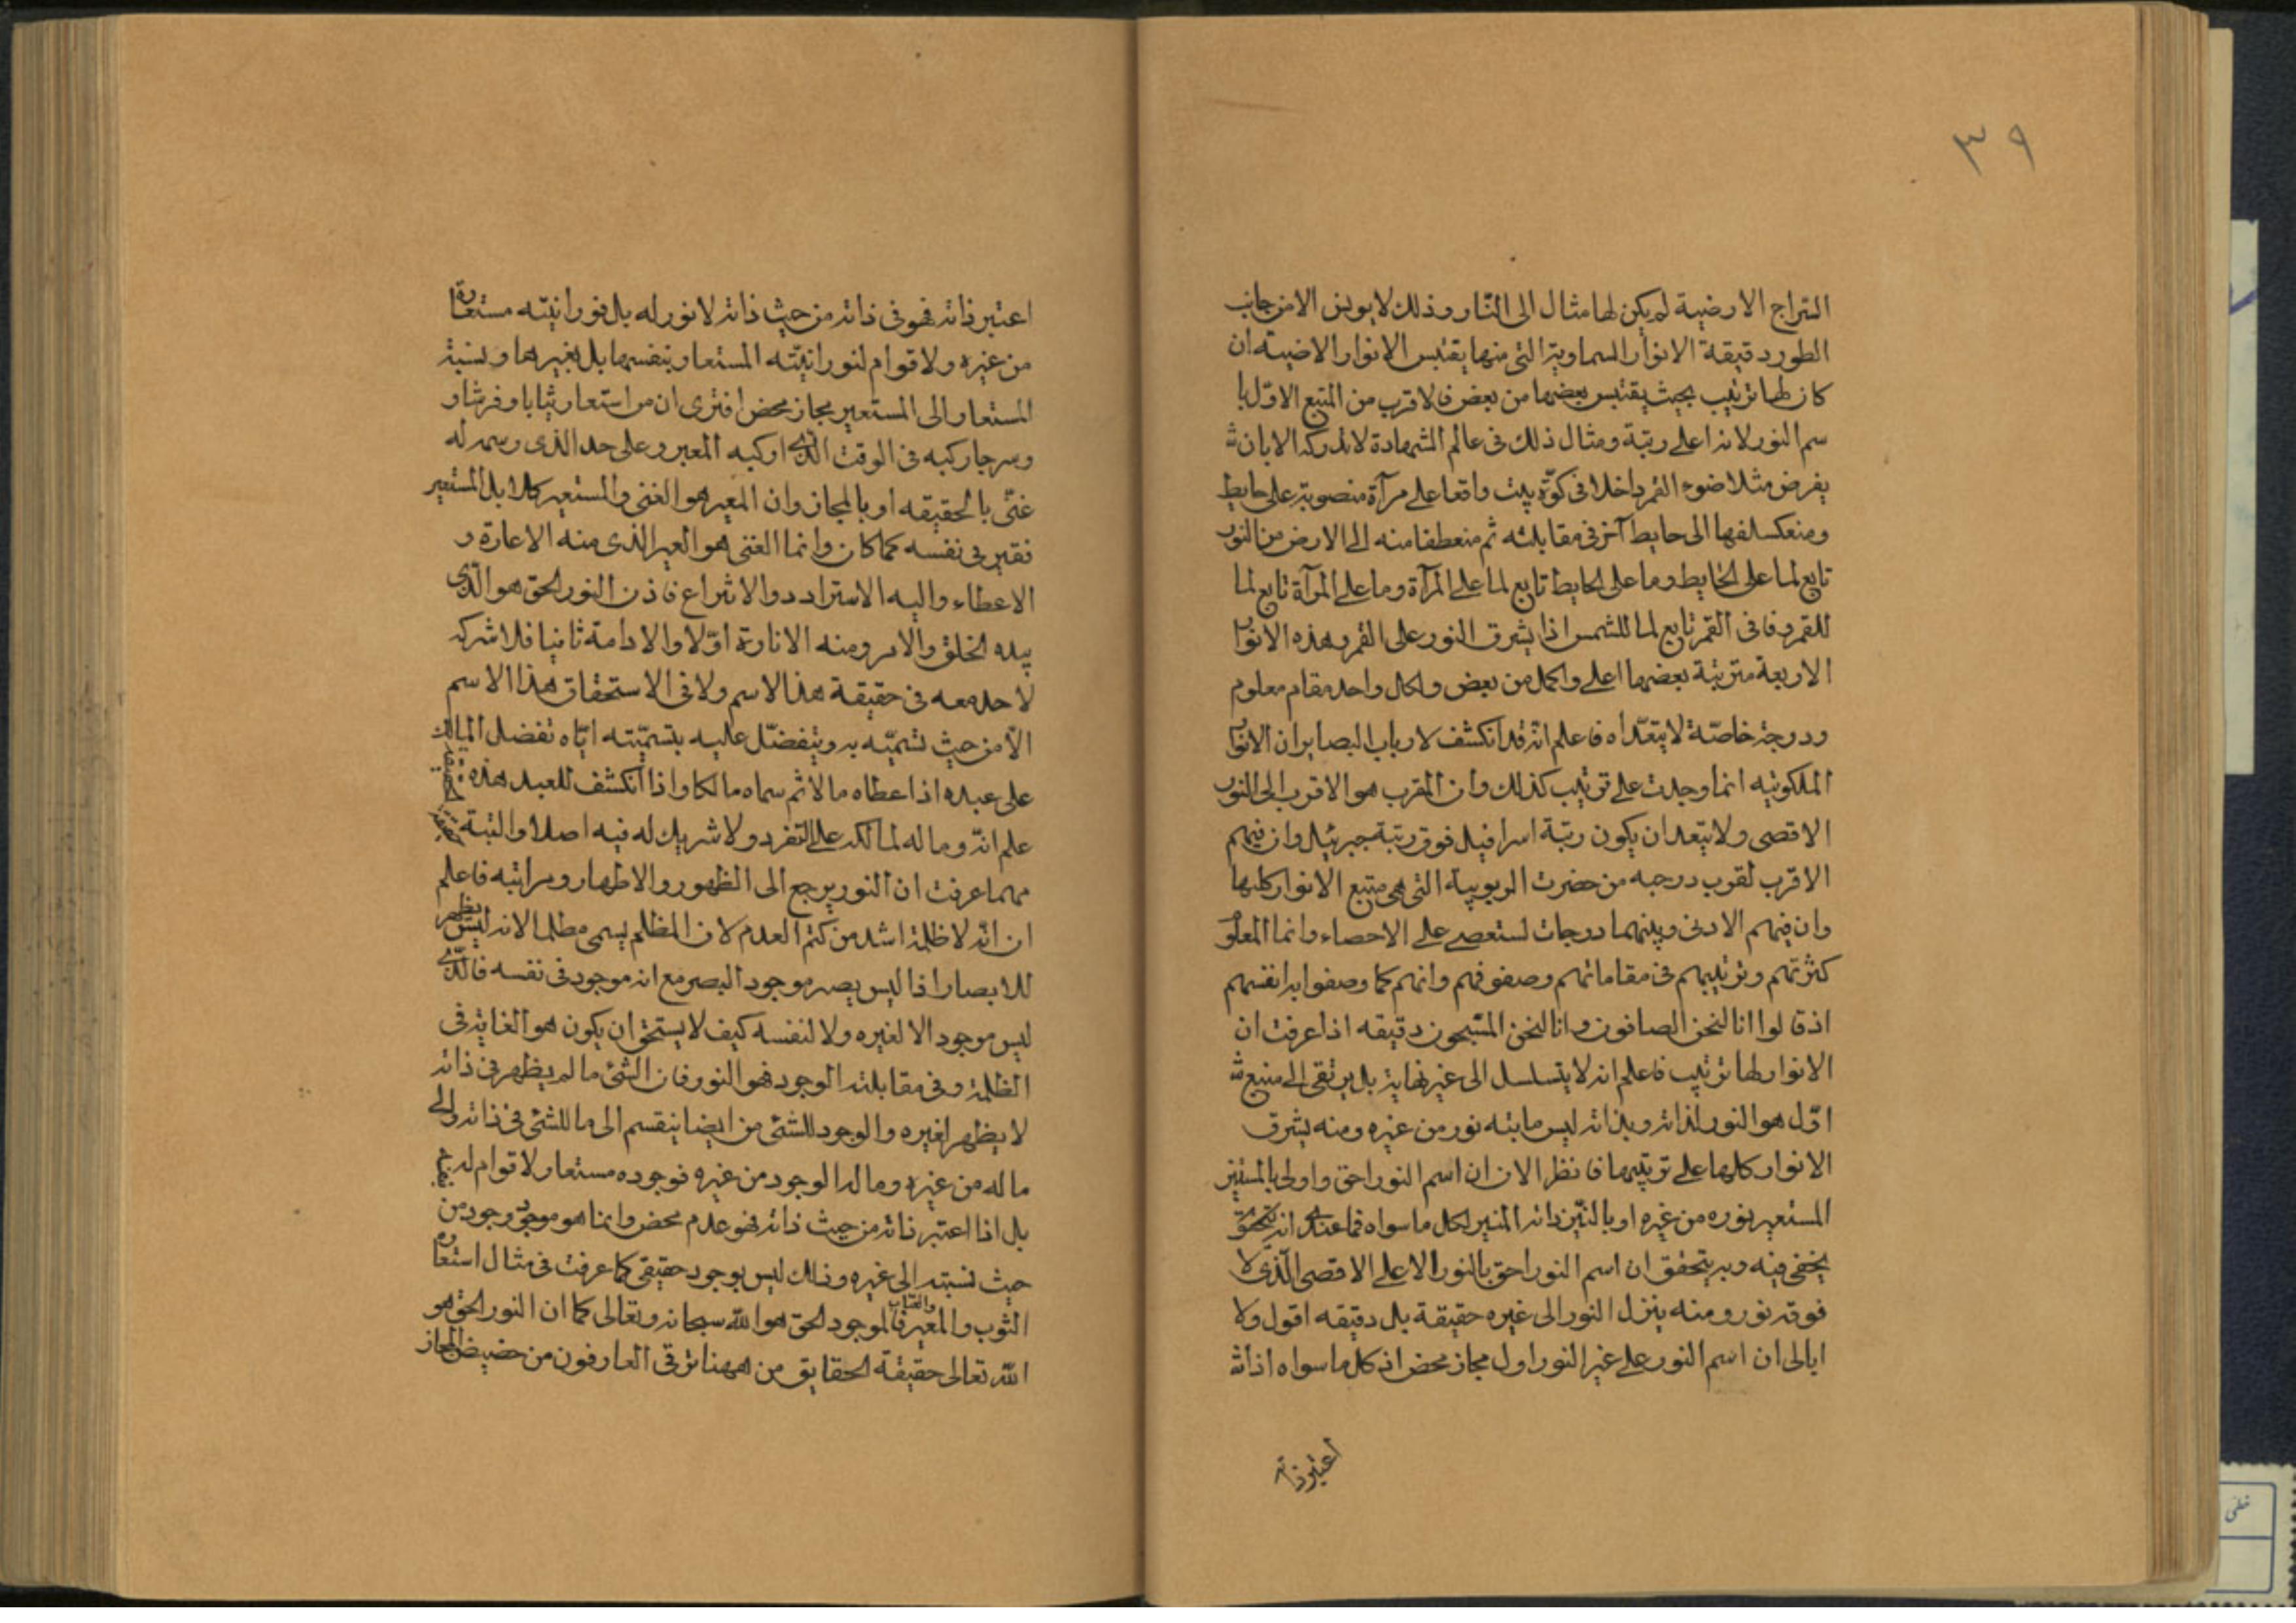 ٣٩
السراج الارضية لم يكن لها مثال الى النار وذلك لا يونس الا من جانب
الطور دقيقة الانوار السماوية التي منها يقتبس الانوار الاضيته ان
كان لها ترتيب بحيث يقتبس بعضها من بعض فالاقرب من المنبع الاول با
سم النور لانه اعلى رتبة ومثال ذلك في عالم الشهادة لا تدركه الا بان
يفرض مثلا ضوء القمر داخلا في كوّة بيت واقعا على مرآة منصوبة على حايط
ومنعكسا منها الى حايط آخر في مقابلته ثم منعطفا منه الى الارض من النور
تابع لما على الحايط وما على الحايط تابع لما على المرآة وما على المرآة تابع لما
للقمر وفا في القمر تابع لما للشمس اذا يشرق النور على القمر وهذه الانوار
الاربعة مترتبة بعضها اعلى واكمل من بعض ولكل واحد مقام معلوم
ودرجة خاصّة لا يتعداه فاعلم انه قد انكشف لارباب البصاير ان الانوار
الملكوتيه انما وجدت على ترتيب كذلك وان المقرب هو الاقرب الى النور
الاقصى ولا يتعد ان يكون رتبة اسرافيل فوق رتبة جبرئيل وان فيهم
الاقرب لقرب درجه من حضرت الربوبية التي هي منبع الانوار كلها
وان فيهم الادنى وبينهما درجات تستعصى على الاحصاء وانما المعلوم
كثرتهم وترتيبهم في مقاماتهم وصفوفهم وانهم كما وصفوا به انفسهم
اذ قالوا انا لنحن الصافون وانا لنحن المسبحون دقيقه اذا عرفت ان
الانوار لها ترتيب فاعلم انه لا يتسلسل الى غير نهاية بل يرتقى الى منبع
اوّل هو النور لذاته وبذاته ليس ماتيه نور من غيره ومنه يشرق
الانوار كلها على ترتيبها فانظر الان ان اسم النور احق واولى بالمستنير
المستعير نوره من غيره او بالنيّر ذاته المنير لكل ما سواه فما عندى انه يحق
يخفى فيه وبه يتحقق ان اسم النور احق بالنور الاعلى الاقصى الذى لا
فوقه نور ومنه ينزل النور الى غيره حقيقة بل دقيقه اقول ولا
ابالى ان اسم النور على غير النور اول مجاز محض اذ كل ما سواه اذا
اعتبر ذاته
اعتبر ذاته فهو في ذاته من حيث ذاته لا نور له بل نورانيّته مستعارة
من غيره ولا قوام لنورانيّته المستعار بنفسها بل بغيرها ونسبة
المستعار الى المستعير مجاز محض افترى ان من استعار ثيابا وفرشا و
وسرجا ركبه في الوقت الذى اركبه المعير وعلى حد الذى رسمه له
غنّى بالحقيقه او بالمجاز وان المعير هو الغنى والمستعير كلا بل المستعير
فقير في نفسه كما كان وانما الغنى هو العير الذى منه الاعارة و
الاعطاء واليه الاسترادد والانتزاع فاذن النور الحق هو الّذى
بيده الخلق والامر ومنه الانارة اوّلا والادامة ثانيا فلا شركه
لاحد معه في حقيقة هذا الاسم ولا في الاستحقاق هذا الاسم
الّا من حيث تسميّه به ويتفضّل عليه بتسميّته ايّاه تفضل المالك
على عبده اذا عطاه مالا ثم سماه مالكا واذا انكشف للعبد هذه الحقيقة
علم انه وماله لمالكه على التفرد ولا شريك له فيه اصلا والبتة
مهما عرفت ان النور يرجع الى الظهور والاظهار ومراتبه فاعلم
ان انه لا ظلمة اشد من كتم العدم لان المظلم يسمى مظلما لانه ليس يظهر
للابصار اذا ليس يصير موجود البصر مع انه موجود في نفسه فالّذى
ليس موجود الا لغيره ولا لنفسه كيف لا يستحق ان يكون هو الغاية في
الظلمة وفي مقابلته الوجود فهو النور فان الشئ ما لم يظهر في ذاته
لا يظهر لغيره والوجود للشئ من ايضا ينقسم الى ما للشئ في ذاته والى
ما له من غيره وماله الوجود من غيره فوجوده مستعار ولا قوام له
بل اذا اعتبر ذاته من حيث ذاته فهو عدم محض وانما هو موجود وجود من
حيث نسبته الى غيره وذلك ليس بوجود حقيقى كما عرفت في مثال استعارة
الثوب والمعير فالموجود الحق هو الله سبحانه وتعالى كما ان النور الحق هو
الله تعالى حقيقة الحقايق من ههنا ترقى العارفون من حضيض المجاز